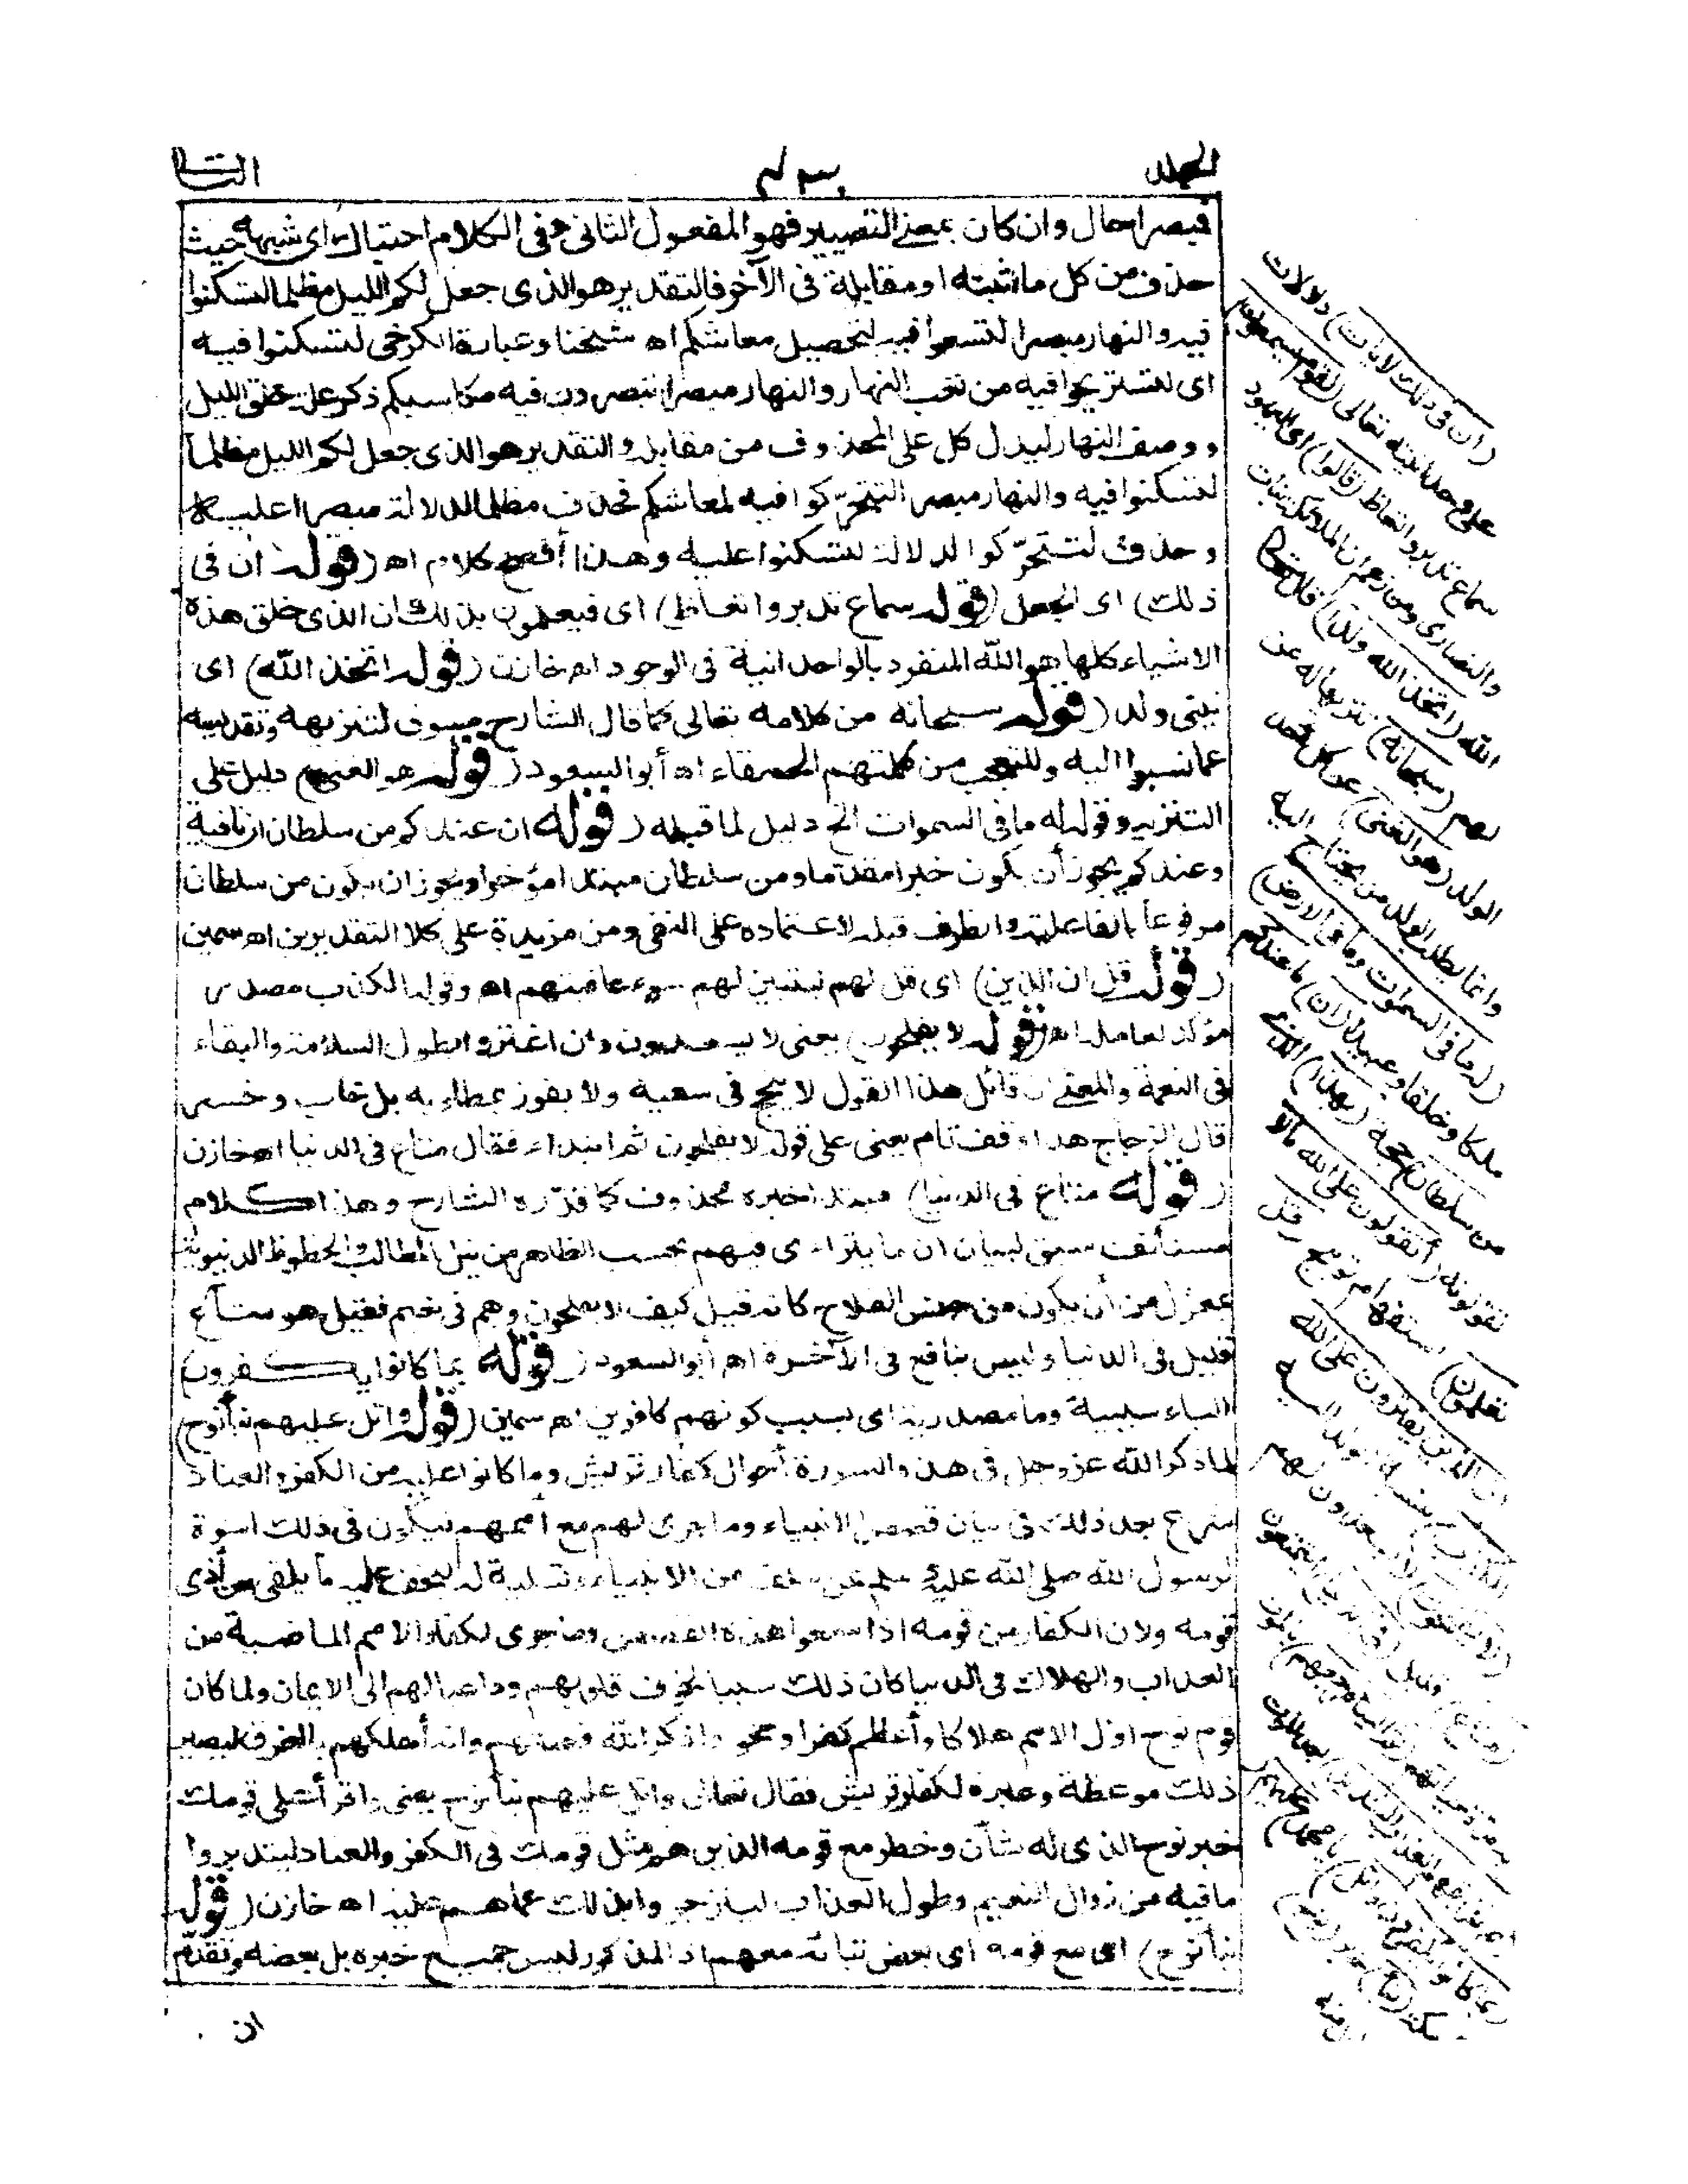 المجلد
الثانى
فمبصرا حال وان كان بمعنى التصيير فهو المفعول الثانى وفى الكلام احتباك اى شبهه حيث
حذف من كل ما أثبته او مقابله فى الآخر فالتقدير هو الذى جعل لكم الليل مظلما لتسكنوا
فيه والنهار مبصرا لتسعوا فيه لتحصيل معاشكم اه شيخنا وعبارة الكرخى لتسكنوا فيه
اى لتستريحوا فيه من تعب النهار والنهار مبصرا تبصرون فيه مكاسبكم ذكر علة خلق الليل
ووصف النهار ليدل كل على المحذوف من مقابله والتقدير هو الذى جعل لكم الليل مظلما
لتسكنوا فيه والنهار مبصرا لتتحرّكوا فيه لمعاشكم فحذف مظلما لدلالة مبصرا عليه
وحذف لتتحرّكوا لدلالة لتسكنوا عليه وهذا أفصح كلام اه (قوله ان فى
ذلك) اى الجعل (قوله سماع تدبر واتعاظ) اى فيعلمون بذلك ان الذى خلق هذه
الاشياء كلها هو الله المنفرد بالواحدانية فى الوجود اه خازن (قوله اتخذ الله) اى
تبنى ولدا (قوله سبحانه من كلامه تعالى كما قال الشارح مسوق لتنزيهه وتقديسه
عما نسبوا اليه وللتعجب من كلمتهم الحمقاء اه أبو السعود (قوله هو الغنى) دليل على
التنزيه وقوله له ما فى السموات الخ دليل لما قبله (قوله ان عندكم من سلطان ان نافية
وعندكم يجوز أن يكون خبرا مقدّما ومن سلطان مبتدا مؤخرا ويجوز ان يكون من سلطان
مرفوعا بالفاعلية والظرف قبله لاعتماده على النفى ومن مزيدة على كلا التقديرين اه سمين
(قوله قل ان الذين) اى قل لهم لتبين لهم سوء عاقبتهم اه وقوله الكذب مصدر
مؤكد لعامله اه (قوله لا يفلحون) يعنى لا يسعدون وان اغتروا بطول السلامة والبقاء
فى النعمة والمعنى ان قائل هذا القول لا ينجح فى سعيه ولا يفوز بمطلوبه بل خاب وخسر
قال الزجاج هذا وقف تام يعنى على قوله لا يفلحون ثم ابتداء فقال متاع فى الدنيا اه خازن
(قوله متاع فى الدنيا) مبتدا خبره محذوف كما قدّره الشارح وهذا كلام
مستأنف سيق لبيان ان ما يتراءى فيهم بحسب الظاهر من نيل المطالب والحظوظ الدنيوية
بمعزل من أن يكون من جنس الفلاح كانه قيل كيف لا يفلحون وهم فى نعيم فقيل هو متاع
قليل فى الدنيا وليس بنافع فى الآخرة اه أبو السعود (قوله بما كانوا يكفرون)
الباء سببية وما مصدرية اى بسبب كونهم كافرين اه سمين (قوله واتل عليهم نبأ نوح)
لما ذكر الله عز وجل فى هذه السورة أحوال كفار قريش وما كانوا عليه من الكفر والعناد
شرع بعد ذلك فى بيان قصص الانبياء وما جرى لهم مع أممهم ليكون فى ذلك اسوة
لرسول الله صلى الله عليه وسلم بمن سلف من الانبياء وتسلية له ليخف عليه ما يلقى من أذى
قومه ولان الكفار من قومه اذا سمعوا هذه القصص وما جرى لكفار الامم الماضية من
العذاب والهلاك فى الدنيا كان ذلك سببا لخوف قلوبهم وداعيا لهم الى الايمان ولما كان
قوم نوح اول الامم هلاكا وأعظم كفرا وجحودا ذكر الله قصتهم وانه أهلكهم بالغرق ليصير
ذلك موعظة وعبرة لكفار قريش فقال تعالى واتل عليهم نبأ نوح يعنى واقرأ على قومك
خبر نوح الذى له شأن وخطر مع قومه الذين هم مثل قومك فى الكفر والعناد ليتدبروا
ما فيه من زوال النعيم وطول العذاب لينزجروا بذلك عما هم عليه اه خازن (قوله
نبأ نوح) اى مع قومه اى بعض نبائه معهم اذ المذكور ليس جميع خبره بل بعضه وتقدّم
ان
(ان فى ذلك لآيات) دلالات
على وحدانيته تعالى (لقوم يسمعون)
سماع تدبر واتعاظ (قالوا) اى اليهود
والنصارى ومن زعم ان الملائكة بنات
الله (اتخذ الله ولدا) قال تعالى
لهم (سبحانه) تنزيها له عن
الولد (هو الغنى) عن كل أحد
وانما يطلب الولد من يحتاج اليه
(له ما فى السموات وما فى الارض)
ملكا وخلقا وعبيدا (ان) ما عندكم
من سلطان) حجة (بهذا) الذى
تقولونه (أتقولون على الله مالا
تعلمون) استفهام توبيخ (قل
ان الذين يفترون على الله